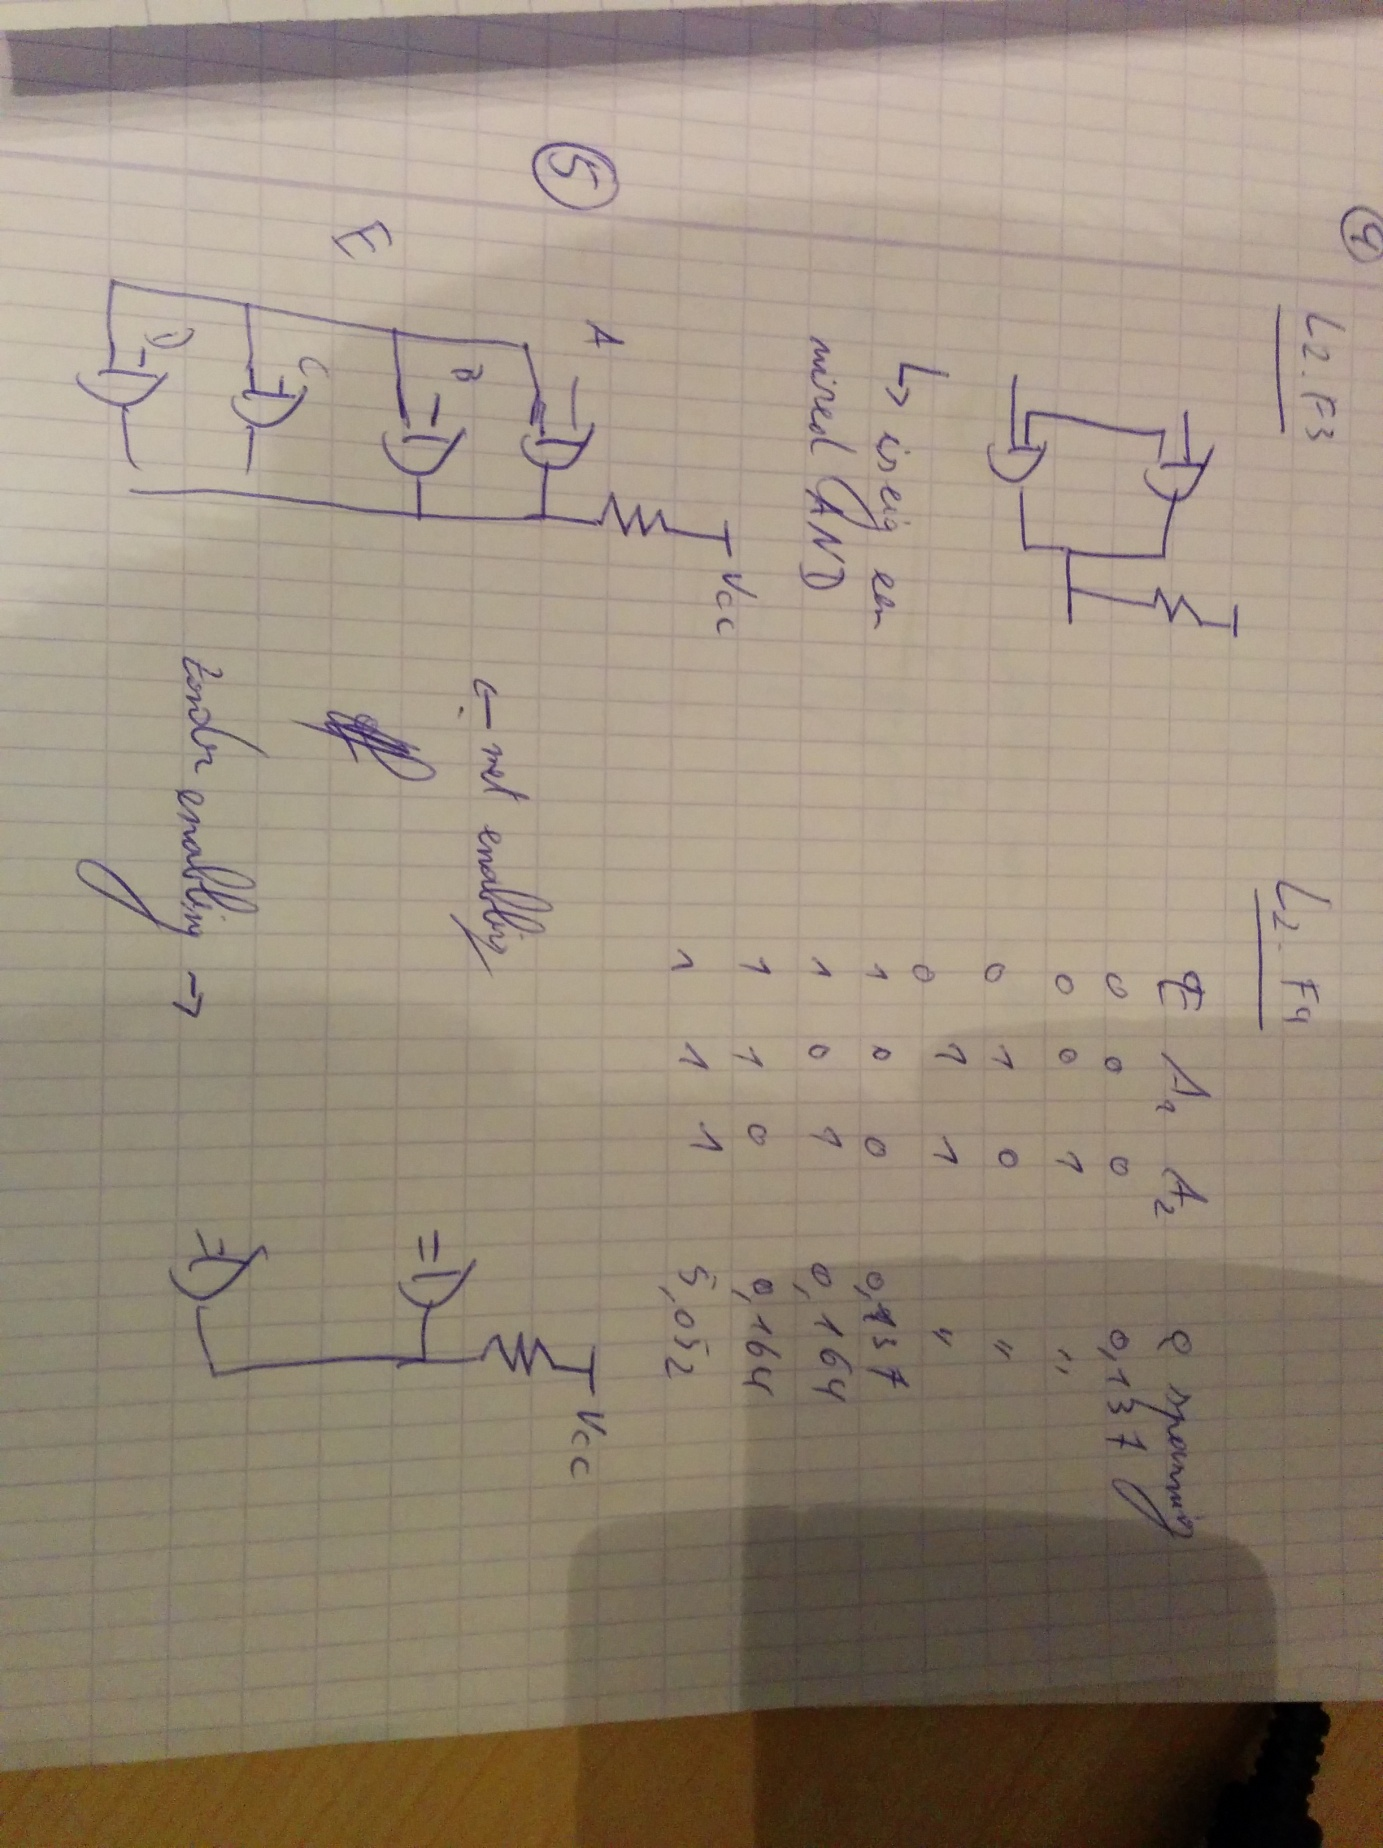 ④
L2.F3
↳ is eig een
wired AND
L2.F4
E A₁ A₂ Q spanning
0 0 0 0,137
0 0 1 "
0 1 0 "
0 1 1 "
1 0 0 0,137
1 0 1 0,164
1 1 0 0,164
1 1 1 5,052
⑤
A
Vcc
B
E
C
D
← met enabling
zonder enabling →
Vcc